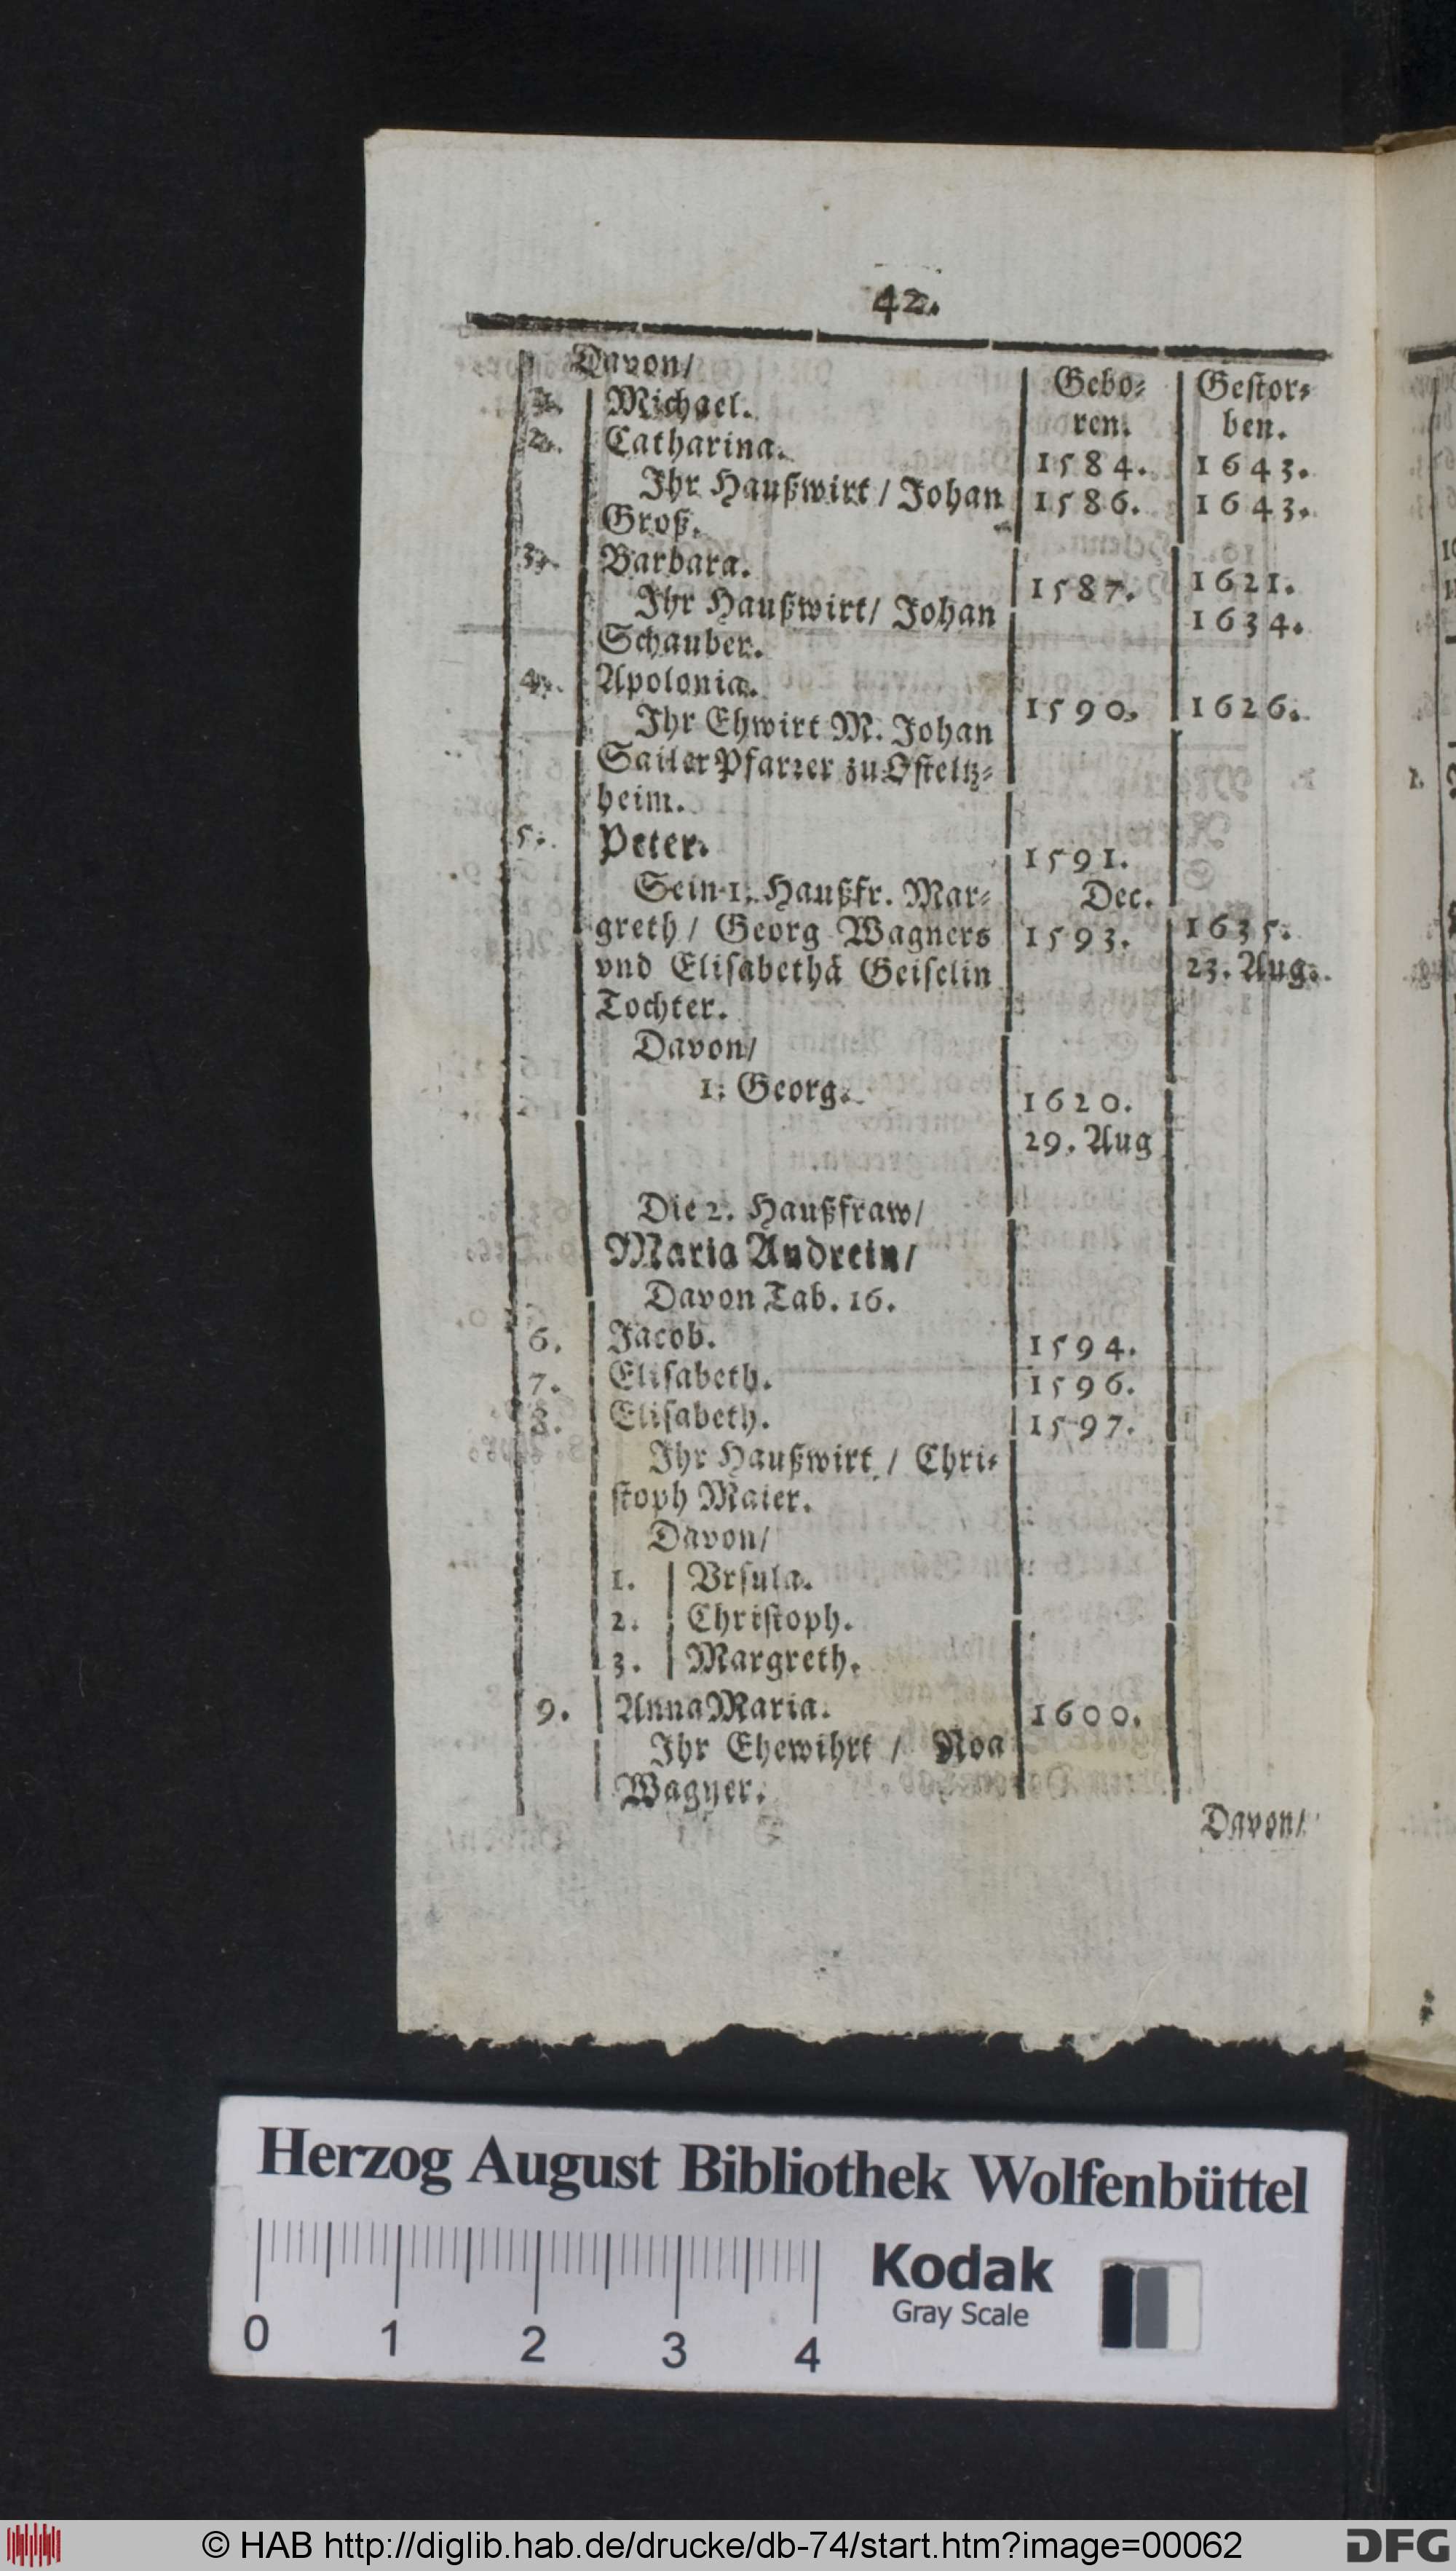 42.
Davon/
Gebo⸗ Gestor⸗
1. Michael. ren. ben.
2. Catharina. 1584. 1643.
Ihr Haußwirt / Johan 1586. 1643.
Groß.
3. Barbara. 1587. 1621.
Ihr Haußwirt/ Johan 1634.
Schauber.
4. Apolonia. 1590. 1626.
Ihr Ehwirt M. Johan
Sailer Pfarrer zu Osteltz⸗
heim.
5. Peter. 1591.
Sein 1. Haußfr. Mar⸗ Dec.
greth / Georg Wagners 1593. 1635.
vnd Elisabethä Geiselin 23. Aug.
Tochter.
Davon/
1. Georg. 1620.
29. Aug
Die 2. Haußfraw/
Maria Andrein/
Davon Tab. 16.
6. Jacob. 1594.
7. Elisabeth. 1596.
8. Elisabeth. 1597.
Ihr Haußwirt / Chri⸗
stoph Maier.
Davon/
1. Vrsula.
2. Christoph.
3. Margreth.
9. Anna Maria. 1600.
Ihr Ehewihrt / Noa
Wagner.
Davon/
Herzog August Bibliothek Wolfenbüttel
0 1 2 3 4
Kodak
Gray Scale
© HAB http://diglib.hab.de/drucke/db-74/start.htm?image=00062
DFG